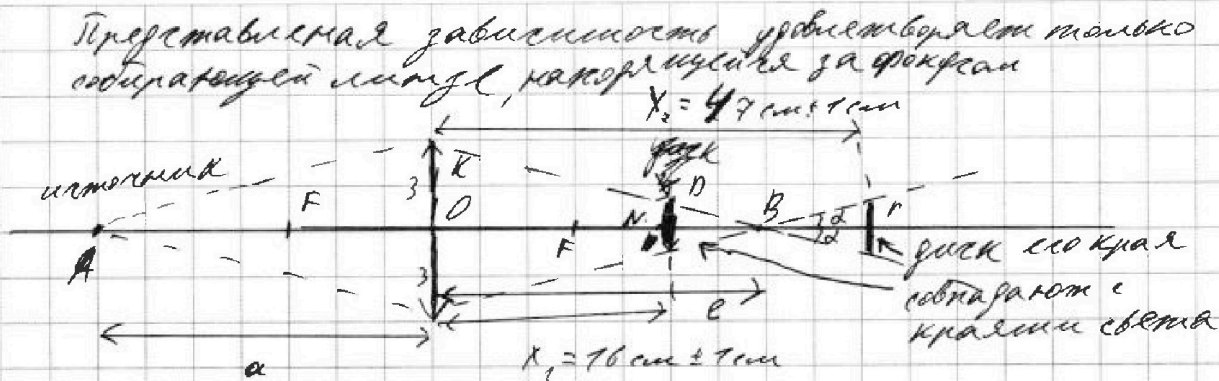 Представленая зависимость удовлетворяет только
собирающей линзе, находящейся за фокусом
X₂ = 47 см ± 1 см
диск
источник
3 K D
F O N B r
F α
A α
3 диск его края
e совпадают с
краями света
a X₁ = 16 см ± 1 см